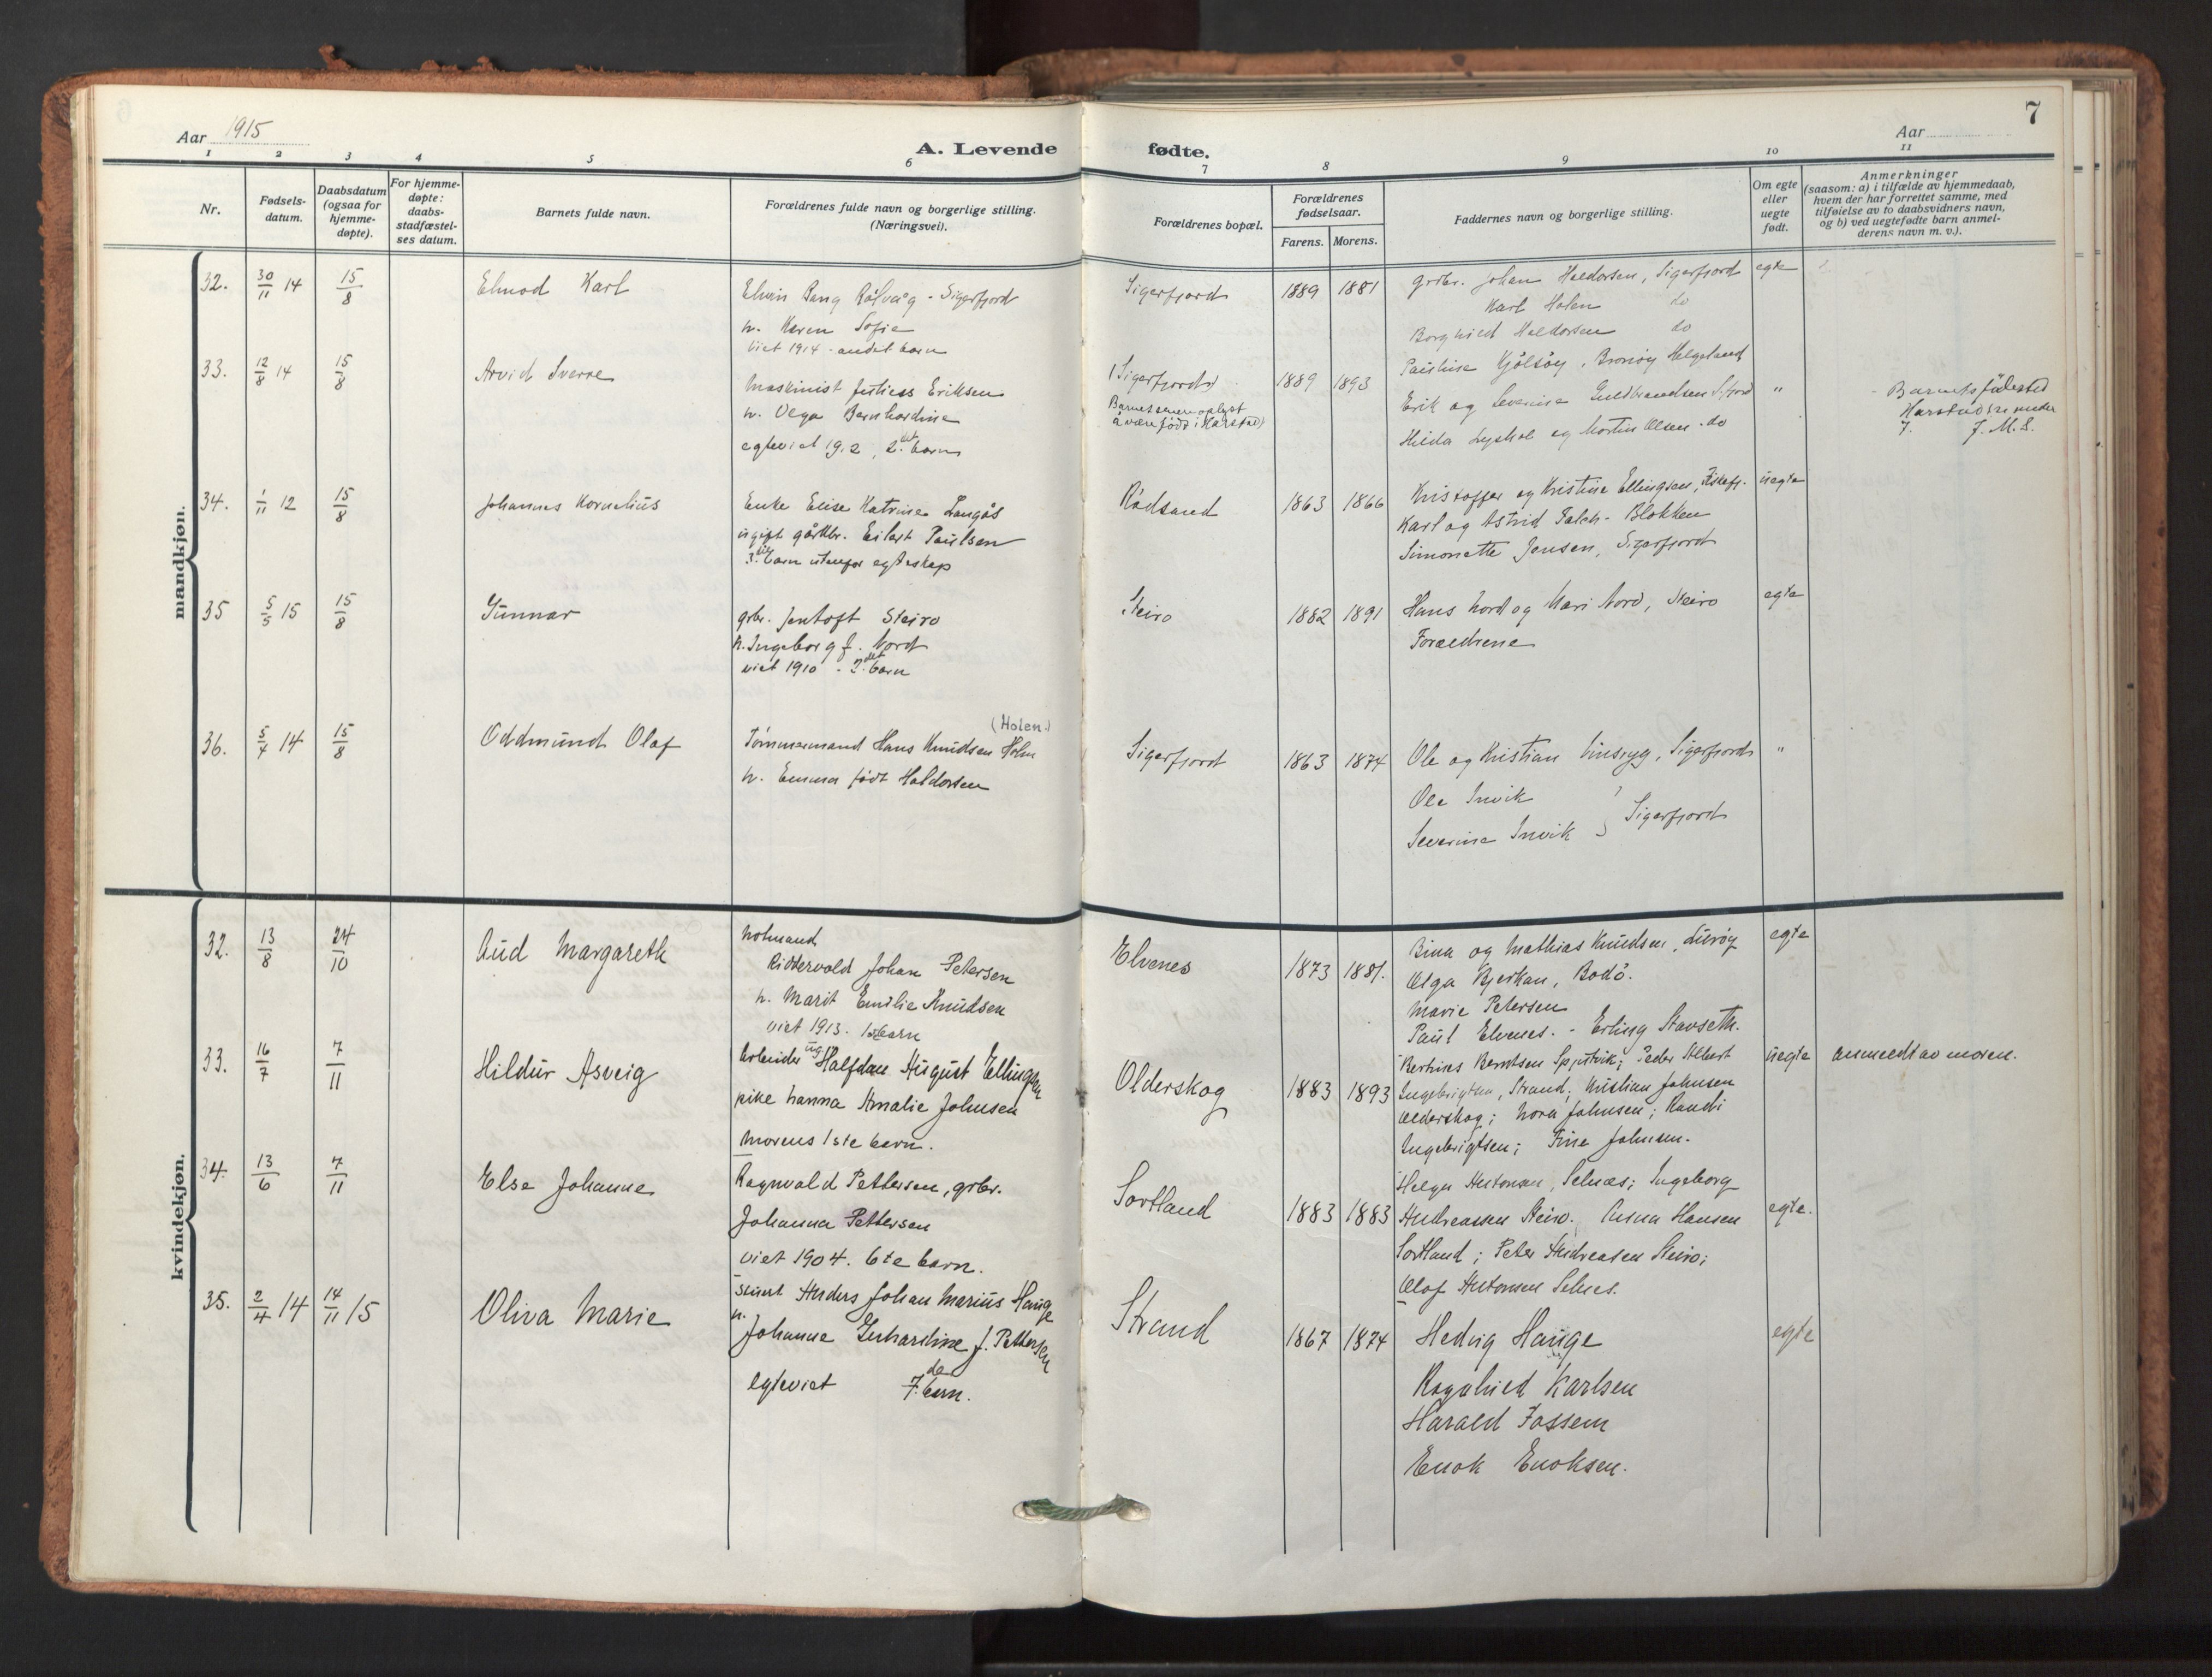 7
Aar 1915
A. Levende fødte.
Aar
1 2 3 4 5 6 7 8 9 10 11
Nr.
Fødsels-
datum.
Daabsdatum
(ogsaa for
hjemme-
døpte).
For hjemme-
døpte:
daabs-
stadfæstel-
ses datum.
Barnets fulde navn.
Forældrenes fulde navn og borgerlige stilling.
(Næringsvei).
Forældrenes bopæl.
Forældrenes
fødselsaar.
Farens. Morens.
Faddernes navn og borgerlige stilling.
Om egte
eller
uegte
født.
Anmerkninger
(saasom: a) i tilfælde av hjemmedaab,
hvem der har forrettet samme, med
tilføielse av to daabsvidners navn,
og b) ved uegtefødte barn anmel-
derens navn m. v.).
mandkjøn.
32. 30/11 14 15/8 Elmod Karl
Elvin Bang Rølvåg - Sigerfjord
h. Karen Sofie
viet 1914 - andet barn
Sigerfjord 1889 1881
grbr. Johan Haldorsen, Sigerfjord egte
Karl Holen do
Borghild Haldorsen do
33. 12/8 14 15/8 Arvid Sverre
Maskinist Eriksen
h. Olga Bernhardine
egteviet 1912, 2det barn
(Sigerfjord)
Barnet senere oplyst
å være født i Harstad)
1889 1893
Pauline Gjølsøy, Brønøy Helgeland
Erik og Severine Guldbrandsen S.fjord "
Hilda og Morten Olsen - do
Barnets fødested
Harstad
34. 1/11 12 15/8 Johannes Kornelius
Enke Elise Katrine Langås
ugift gårdbr. Eilert Paulsen
3die barn utenfor egteskap
Rødsand 1863 1866
Kristoffer og Kristine Ellingsen, uegte
Karl og Astrid Falch - Blokken
Simonette Jensen, Sigerfjord
35 5/5 15 15/8 Gunnar
grbr. Jentoft Steiro
h. Ingeborg f. Nord
viet 1910 - 2det barn
Steiro 1882 1891
Hans Nord og Mari Nord, Steiro egte
Forældrene
36. 5/4 14 15/8 Oddmund Olaf
(Holen.)
Tømmermand Hans Knudsen Holm
h. Emma født Haldorsen
Sigerfjord 1863 1874
Ole og Kristian, Sigerfjord "
Ole Invik
Severine Invik } Sigerfjord
kvindekjøn.
32. 13/8 24/10 Aud Margareth
Notmand
Riddervold Johan Petersen
h. Marit Emilie Knudsen
viet 1913. 1ste barn
Elvenes 1873 1881.
Bina og Mathias Knudsen, Lurøy egte
Olga Bjerkan, Bodø.
Marie Petersen
Paul Elvenes. - Erling Stavseth.
33. 16/7 7/11 Hildur Asveig
Arbeider ug. Halfdan August Ellingsen
pike Hanna Amalie Johnsen
Morens 1ste barn.
Olderskog 1883 1893
Berntsen Spjutvik; Peder Albert uegte
Ingebrigtsen, Strand; Kristian Johnsen
Olderskog; Nora Johnsen; Randi
Ingebrigtsen; Fine Johnsen.
anmeldt av moren.
34. 13/6 7/11 Else Johanne
Ragnvald Pettersen, grbr.
Johanna Pettersen
viet 1904. 6te barn.
Sortland 1883 1883
Helga Antonsen, Selnæs; Ingeborg
Andreassen Steiro. Anna Hansen egte.
Sortland; Peter Andreasen Steiro;
Olof Antonsen Selnes.
35. 2/4 14 14/11 15 Oliva Marie
Anders Johan Marius Hauge
h.
Johanne Gerhardine f. Pettersen
egteviet 7de barn.
Strand 1867 1874
Hedvig Hauge egte
Ragnhild Karlsen
Harald Fossem
Enok Enoksen.